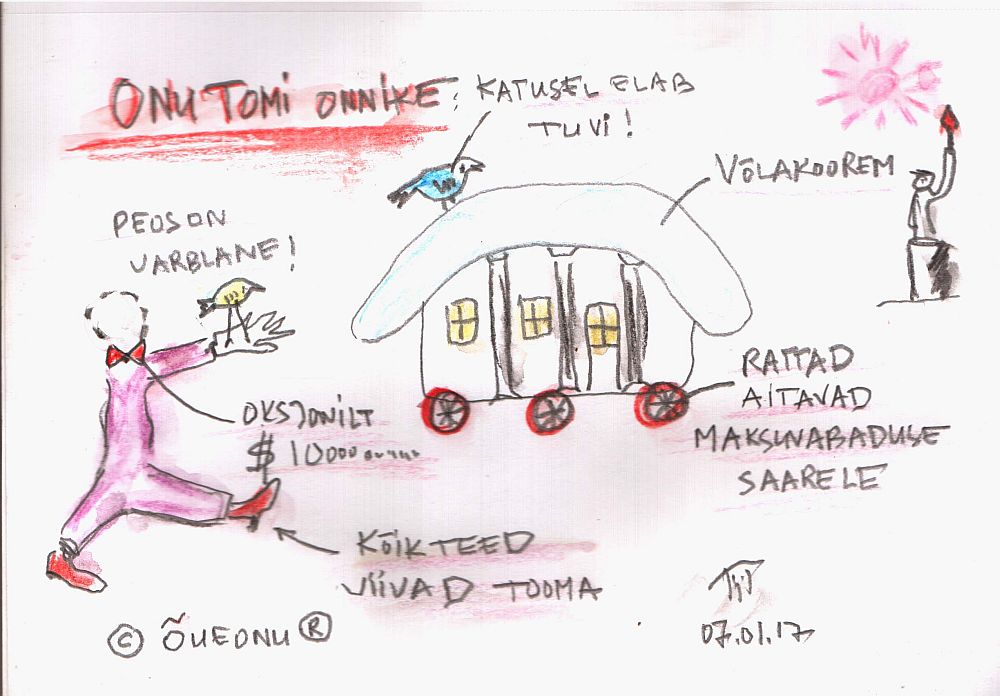 ONU TOMI ONNIKE: KATUSEL ELAB
TUVI!
VÕLAKOOREM
PEOS ON
VARBLANE!
OKSJONILT
$ 10000
RATTAD
AITAVAD
MAKSUVABADUSE
SAARELE
KÕIK TEED
VIIVAD TOOMA
© ÕUEONU ®
07.01.17